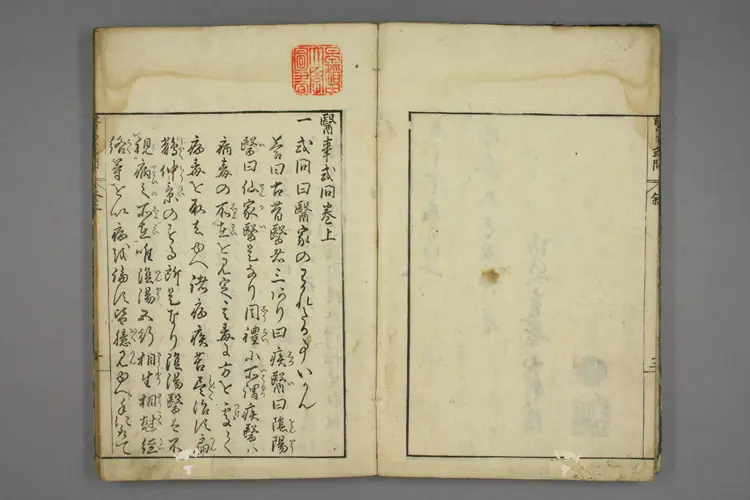 醫事或問巻上
一或問曰醫家のわかれたる事いかん
答曰古昔醫者三つあり曰疾醫曰陰陽
醫曰仙家醫是なり周禮に所謂疾醫ハ
病毒の所在を見定め其毒に方を処して
病毒を取去ゆへ諸病疾苦尽治す扁
鵲仲景のする所是なり陰陽醫は不
視病之所在唯陰陽五行相生相尅経
絡等を以病を論す皆臆見ゆへ